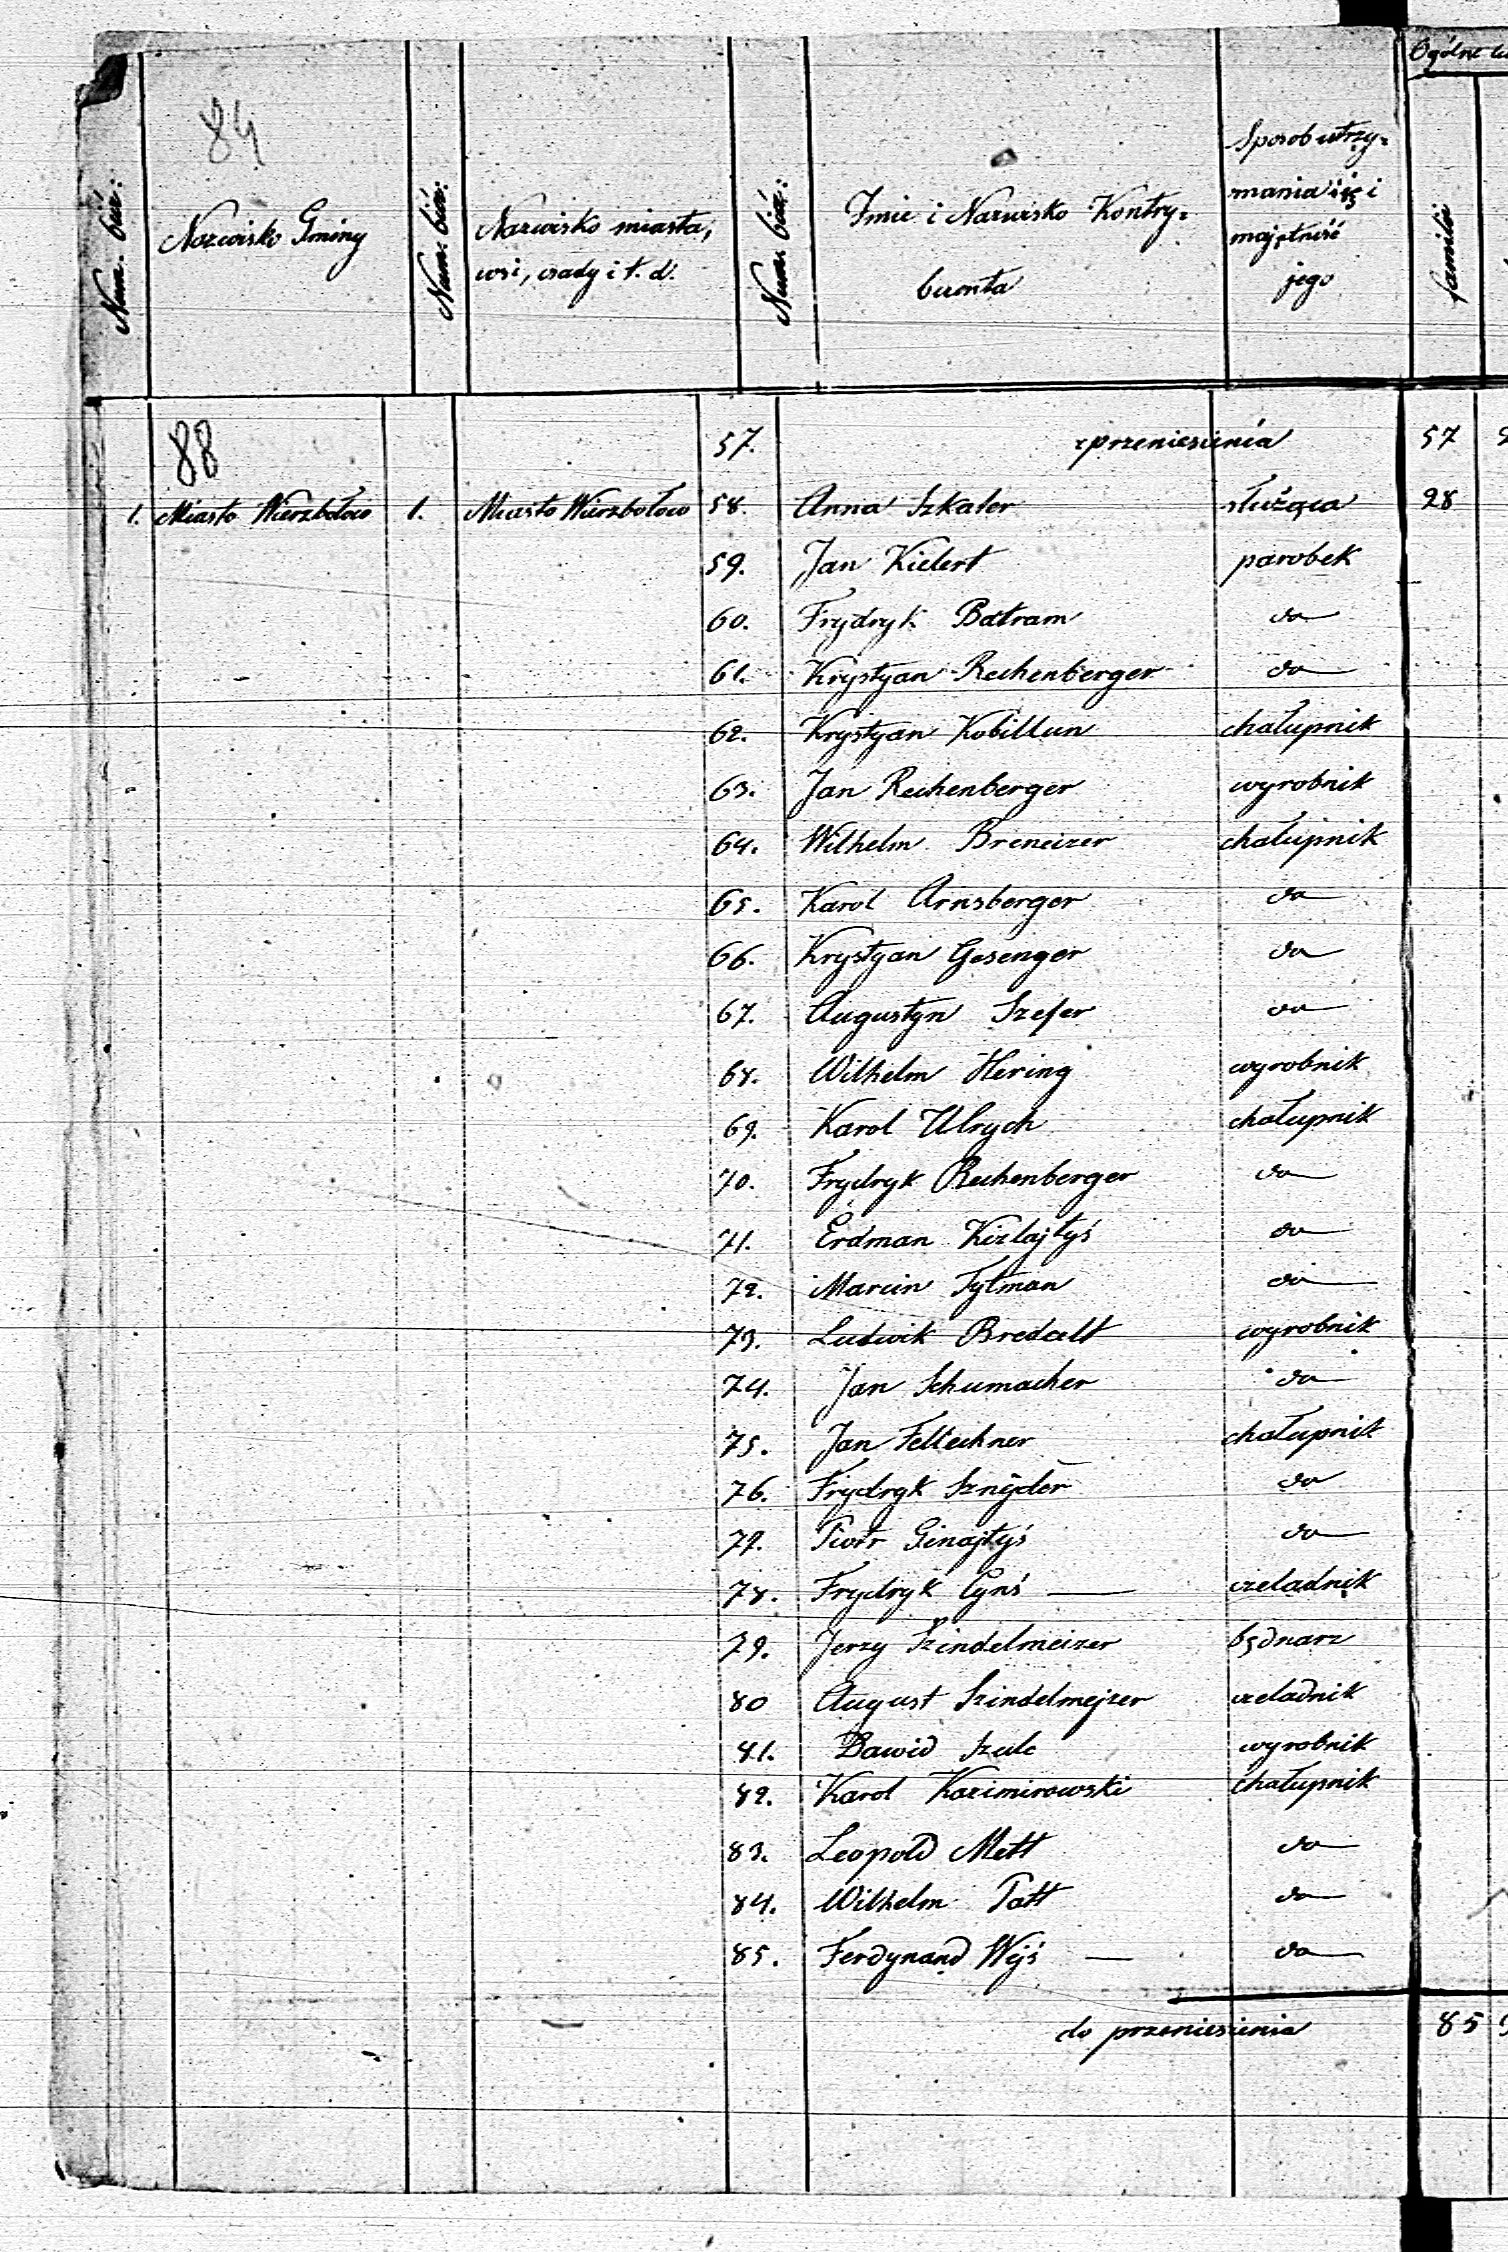 84
Num. bież:
Nazwisko Gminy
Num. bież:
Nazwisko miasta,
wsi, osady i t. d.
Num. bież:
Imie i Nazwisko Kontry-
buenta
Sposob utrzy-
mania się i
majętność
jego
Ogólne
familii
88
57. z przeniesienia 57
1. Miasto Wierzbołow 1. Miasto Wierzbołow 58. Anna Szkaler służąca 28
59. Jan Kielert parobek
60. Frydryk Batram do
61. Krystyan Rechenberger do
62. Krystyan Kobillun chałupnik
63. Jan Rechenberger wyrobnik
64. Wilhelm Breneizer chałupnik
65. Karol Arnsberger do
66. Krystyan Gesenger do
67. Augustyn Szefer do
68. Wilhelm Hering wyrobnik
69. Karol Ulrych chałupnik
70. Frydryk Rechenberger do
71. Erdman Kizlajtyś do
72. Marcin Tytman do
73. Ludwik Bredelt wyrobnik
74. Jan Schumacher do
75. Jan Feltechner chałupnik
76. Frydryk Sznyder do
77. Piotr Ginajtyś do
78. Frydryk Cynś czeladnik
79. Jerzy Szindelmeizer będnarz
80 August Szindelmejzer czeladnik
81. Dawid Szulc wyrobnik
82. Karol Kazimirowski chałupnik
83. Leopold Mett do
84. Wilhelm Tatt do
85. Ferdynand Wejś do
do przeniesienia 85